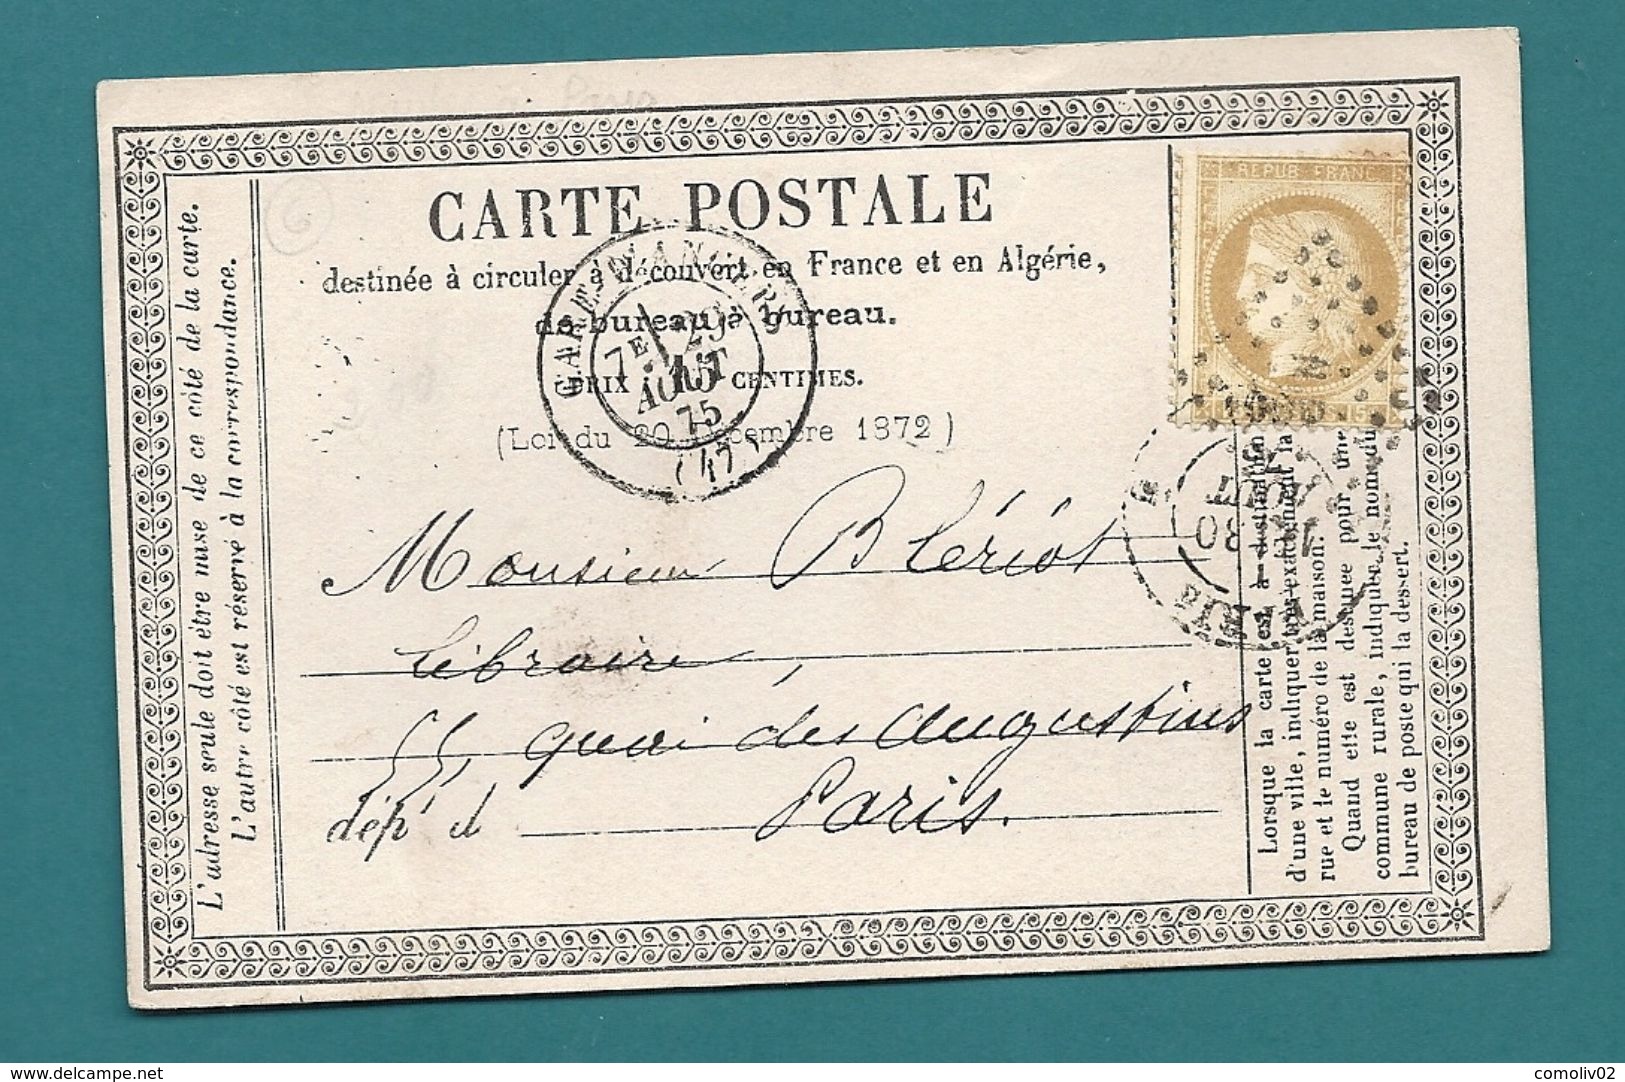 CARTE POSTALE
destinée à circuler à découvert en France et en Algérie,
de bureau à bureau.
PRIX 15 CENTIMES.
(Loi du 20 décembre 1872)
GARE D'ANGERS
7E 29
AOUT
75
(47)
REPUB FRANC
15
30
AOUT
PARIS
Monsieur Blériot
libraire,
55, quai des Augustins
dépt d Paris.
L'adresse seule doit être mise de ce côté de la carte.
L'autre côté est réservé à la correspondance.
Lorsque la carte est à destination
d'une ville, indiquer très exactement la
rue et le numéro de la maison.
Quand elle est destinée pour une
commune rurale, indiquer le nom du
bureau de poste qui la dessert.
www.delcampe.net
comoliv02